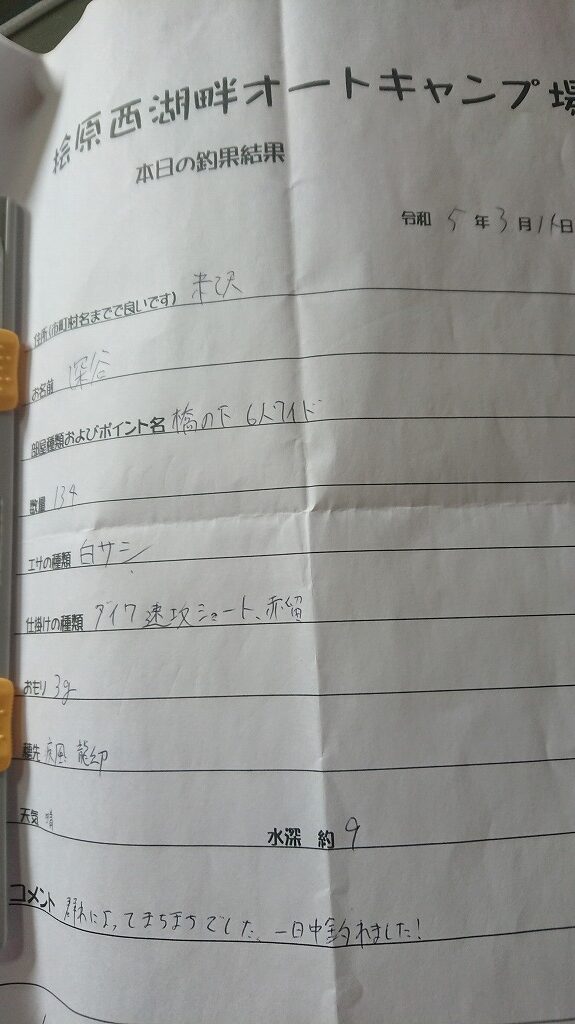 桧原西湖畔オートキャンプ場
本日の釣果結果
令和 5 年 3 月 16 日
住所(市町村名までで良いです) 米沢
お名前 深谷
部屋種類およびポイント名 橋の下 6人ワイド
数量 134
エサの種類 白サシ
仕掛けの種類 ダイワ 速攻ショート、赤留
おもり 3g
穂先 疾風 龍卯
天気 晴
水深 約 9
コメント 群れによってまちまちでした。一日中釣れました!